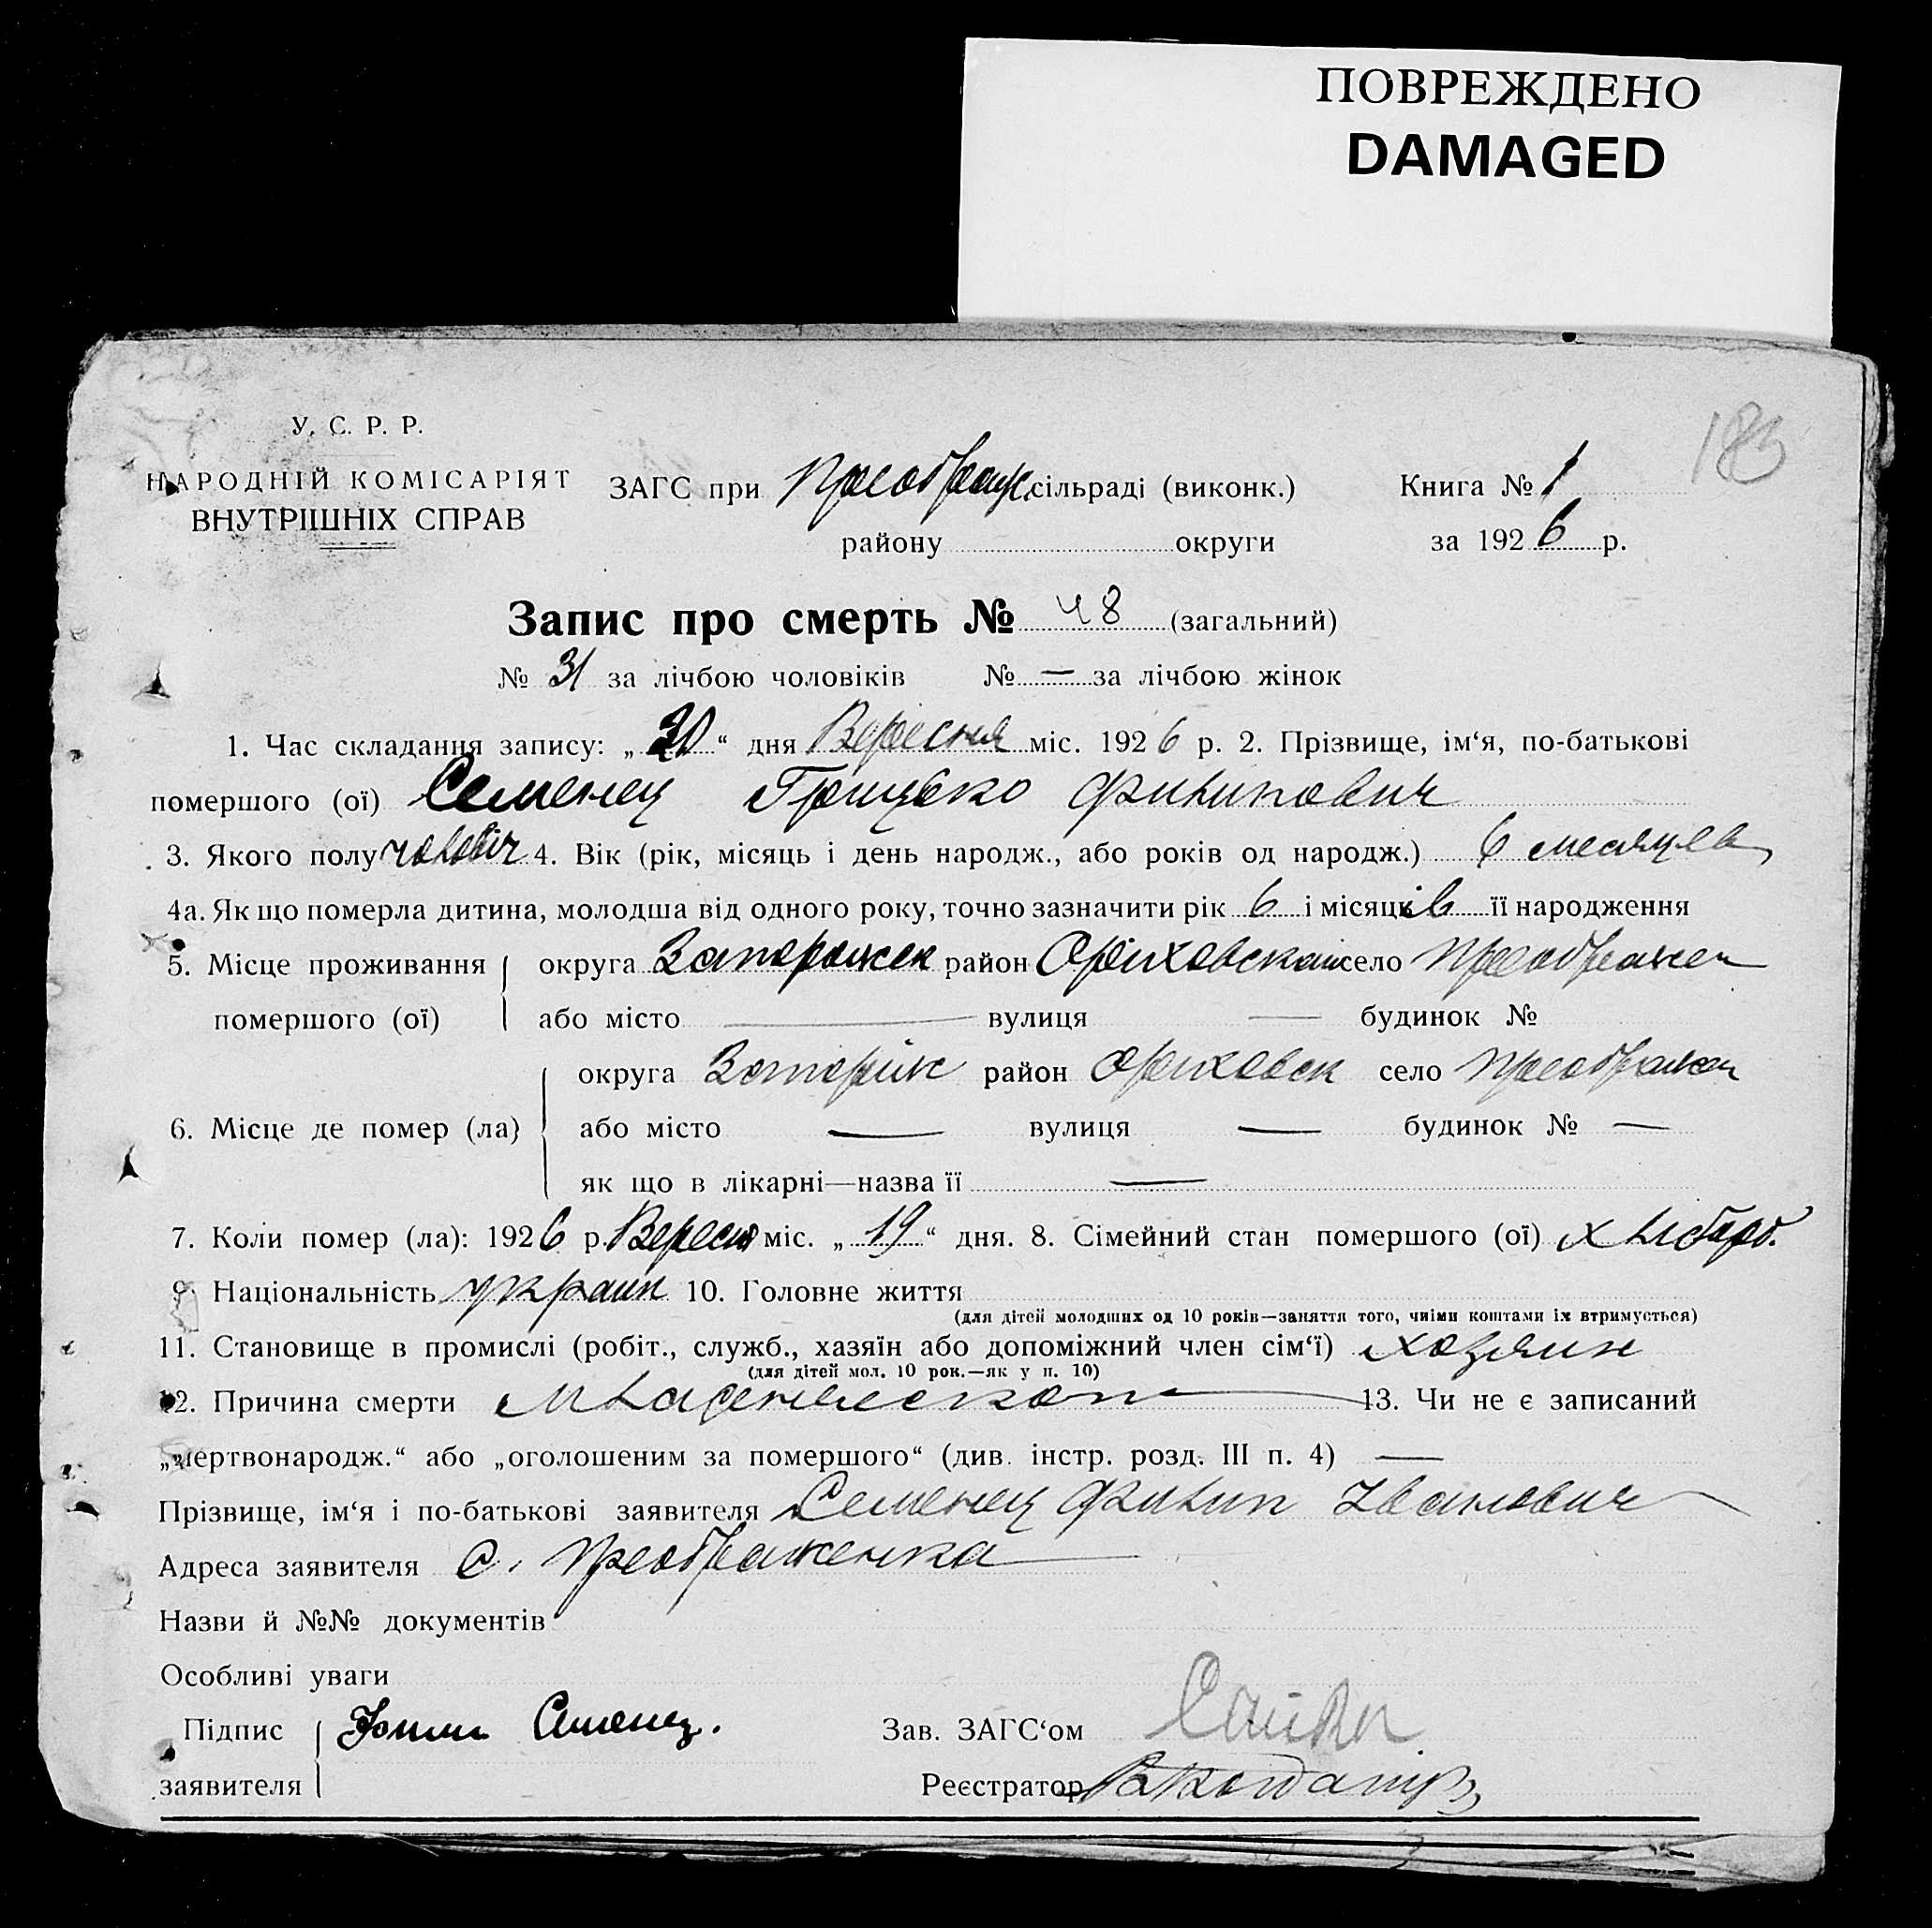 ПОВРЕЖДЕНО
DAMAGED
183
У. С. Р. Р.
НАРОДНІЙ КОМІСАРІЯТ
ВНУТРІШНІХ СПРАВ
ЗАГС при Преображ. сільраді (виконк.) Книга № 1
району округи за 1926 р.
Запис про смерть № 48 (загальний)
№ 31 за лічбою чоловіків № — за лічбою жінок
1. Час складання запису: „20“ дня Вересня міс. 1926 р. 2. Прізвище, ім‘я, по-батькові
помершого (ої) Семенец Грицько Филипович
3. Якого полу чоловіч 4. Вік (рік, місяць і день народж., або років од народж.) 6 месяцев
4а. Як що померла дитина, молодша від одного року, точно зазначити рік 6 і місяць її народження
5. Місце проживання округа Запорожск район Оріховскаи село Преображен
помершого (ої) або місто — вулиця — будинок №
округа Запоріж район Оріховск село Преображен
6. Місце де помер (ла) або місто — вулиця — будинок № —
як що в лікарні—назва її —
7. Коли помер (ла): 1926 р. Вересня міс. „19“ дня. 8. Сімейний стан помершого (ої) хлібороб.
9. Національність украин 10. Головне життя
(для дітей молодших од 10 років—заняття того, чиїми коштами їх втримується)
11. Становище в промислі (робіт., служб., хазяїн або допоміжний член сім‘ї) хозяин
(для дітей мол. 10 рок.—як у п. 10)
12. Причина смерти 13. Чи не є записаний
„мертвонародж.“ або „оголошеним за помершого“ (див. інстр. розд. III п. 4) —
Прізвище, ім‘я і по-батькові заявителя Семенец Филип Иванович
Адреса заявителя С. Преображенка
Назви й №№ документів
Особливі уваги
Підпис Семенец. Зав. ЗАГС‘ом
заявителя Реєстратор